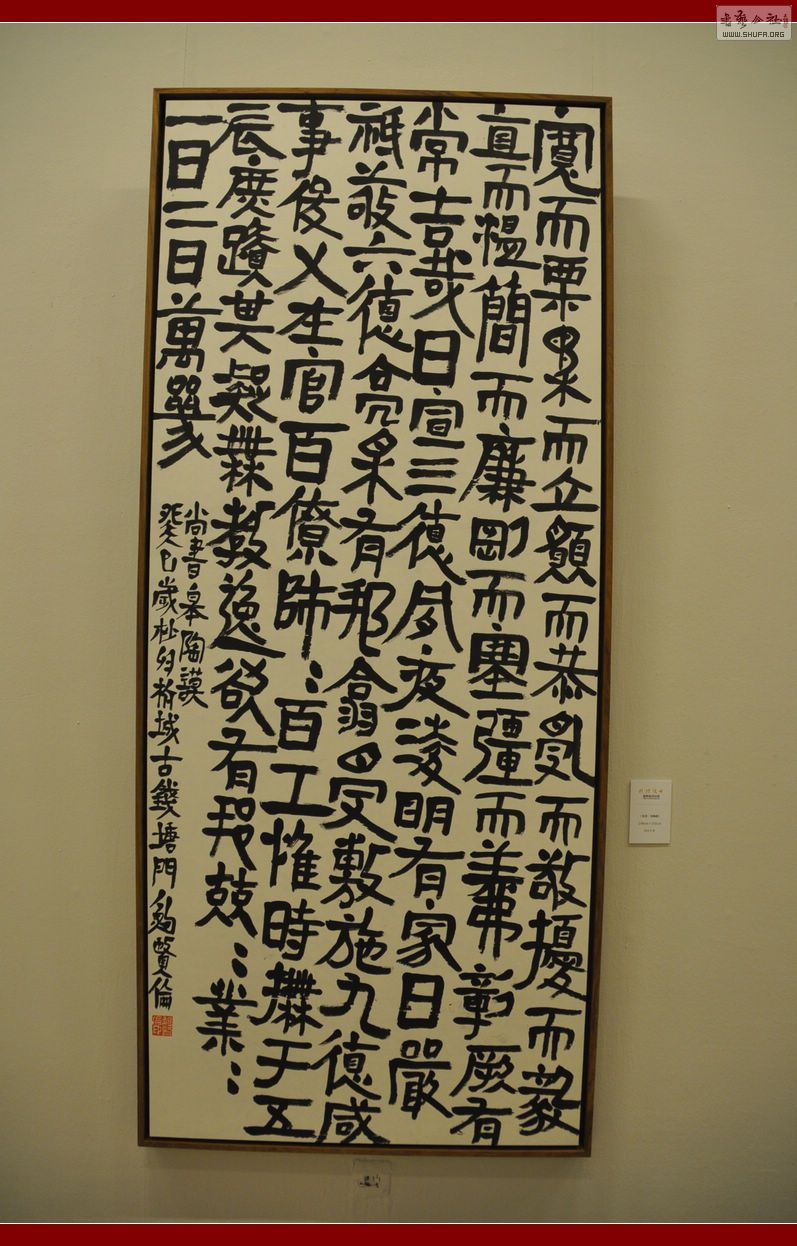 寬而栗柔而立願而恭亂而敬擾而毅
直而溫簡而廉剛而塞彊而義彰厥有
常吉哉日宣三德夙夜浚明有家日嚴
祗敬六德亮采有邦翕受敷施九德咸
事俊乂在官百僚師〻百工惟時撫于五
辰庶績其凝無教逸欲有邦兢〻業〻
一日二日萬幾
尚書皋陶謨
癸巳歲杪於杭城古錢塘門 鮑賢倫
WWW.SHUFA.ORG